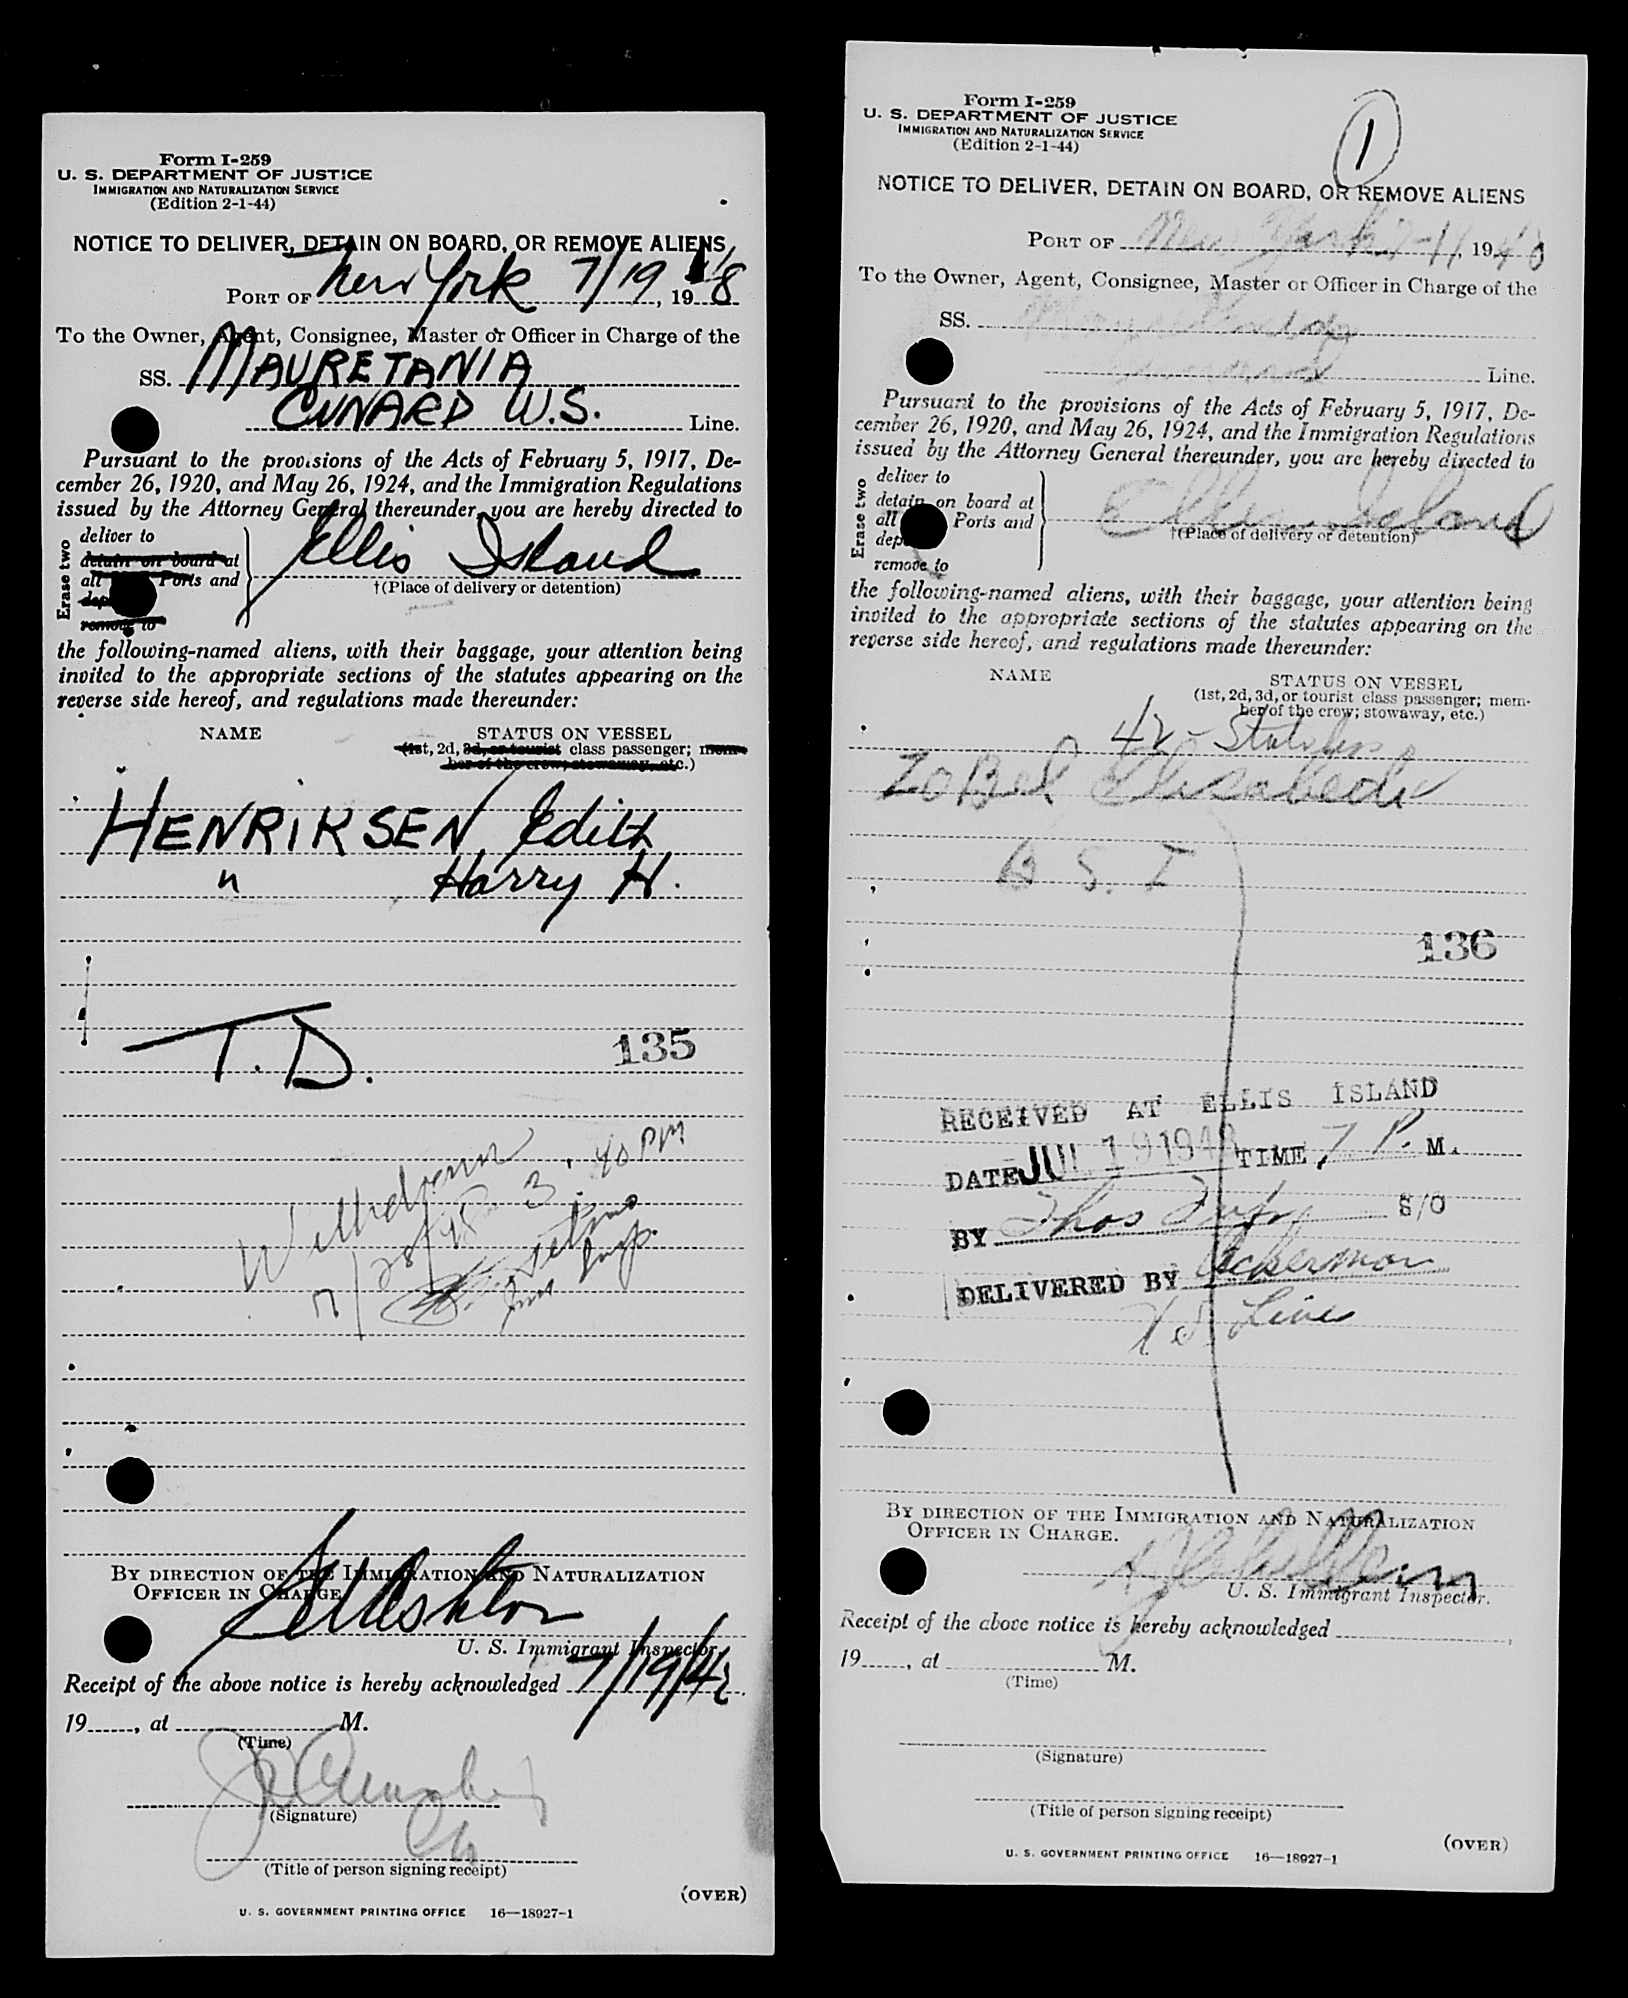 Form I-259
U. S. DEPARTMENT OF JUSTICE
IMMIGRATION AND NATURALIZATION SERVICE
(Edition 2-1-44)
NOTICE TO DELIVER, DETAIN ON BOARD, OR REMOVE ALIENS
PORT OF New York 7/19, 1948
To the Owner, Agent, Consignee, Master or Officer in Charge of the
SS. MAURETANIA
CUNARD W.S. Line.
Pursuant to the provisions of the Acts of February 5, 1917, De-
cember 26, 1920, and May 26, 1924, and the Immigration Regulations
issued by the Attorney General thereunder, you are hereby directed to
Erase two
deliver to
detain on board at
all Ports and
remove to
Ellis Island
†(Place of delivery or detention)
the following-named aliens, with their baggage, your attention being
invited to the appropriate sections of the statutes appearing on the
reverse side hereof, and regulations made thereunder:
NAME STATUS ON VESSEL
(1st, 2d, 3d, or tourist class passenger; mem-
ber of the crew; stowaway, etc.)
HENRIKSEN, Edith
" Harry H.
T.D.
135
Withdrawn
7/20/48 3:40 PM
Insp.
BY DIRECTION OF THE IMMIGRATION AND NATURALIZATION
OFFICER IN CHARGE.
U. S. Immigrant Inspector.
Receipt of the above notice is hereby acknowledged 7/19/48
19......, at M.
(Time)
(Signature)
(Title of person signing receipt)
(OVER)
U. S. GOVERNMENT PRINTING OFFICE 16—18927-1
Form I-259
U. S. DEPARTMENT OF JUSTICE
IMMIGRATION AND NATURALIZATION SERVICE
(Edition 2-1-44)
1
NOTICE TO DELIVER, DETAIN ON BOARD, OR REMOVE ALIENS
PORT OF New York 1948
To the Owner, Agent, Consignee, Master or Officer in Charge of the
SS.
Line.
Pursuant to the provisions of the Acts of February 5, 1917, De-
cember 26, 1920, and May 26, 1924, and the Immigration Regulations
issued by the Attorney General thereunder, you are hereby directed to
Erase two
deliver to
detain on board at
all Ports and
remove to
Ellis Island
†(Place of delivery or detention)
the following-named aliens, with their baggage, your attention being
invited to the appropriate sections of the statutes appearing on the
reverse side hereof, and regulations made thereunder:
NAME STATUS ON VESSEL
(1st, 2d, 3d, or tourist class passenger; mem-
ber of the crew; stowaway, etc.)
42 - Stateless
ZOBEL Elisabeth
B S. I
136
RECEIVED AT ELLIS ISLAND
DATE JUL 19 1948 TIME 7 P. M.
BY Thos S/O
DELIVERED BY Ackerman
Lines
BY DIRECTION OF THE IMMIGRATION AND NATURALIZATION
OFFICER IN CHARGE.
U. S. Immigrant Inspector.
Receipt of the above notice is hereby acknowledged
19......, at M.
(Time)
(Signature)
(Title of person signing receipt)
(OVER)
U. S. GOVERNMENT PRINTING OFFICE 16—18927-1